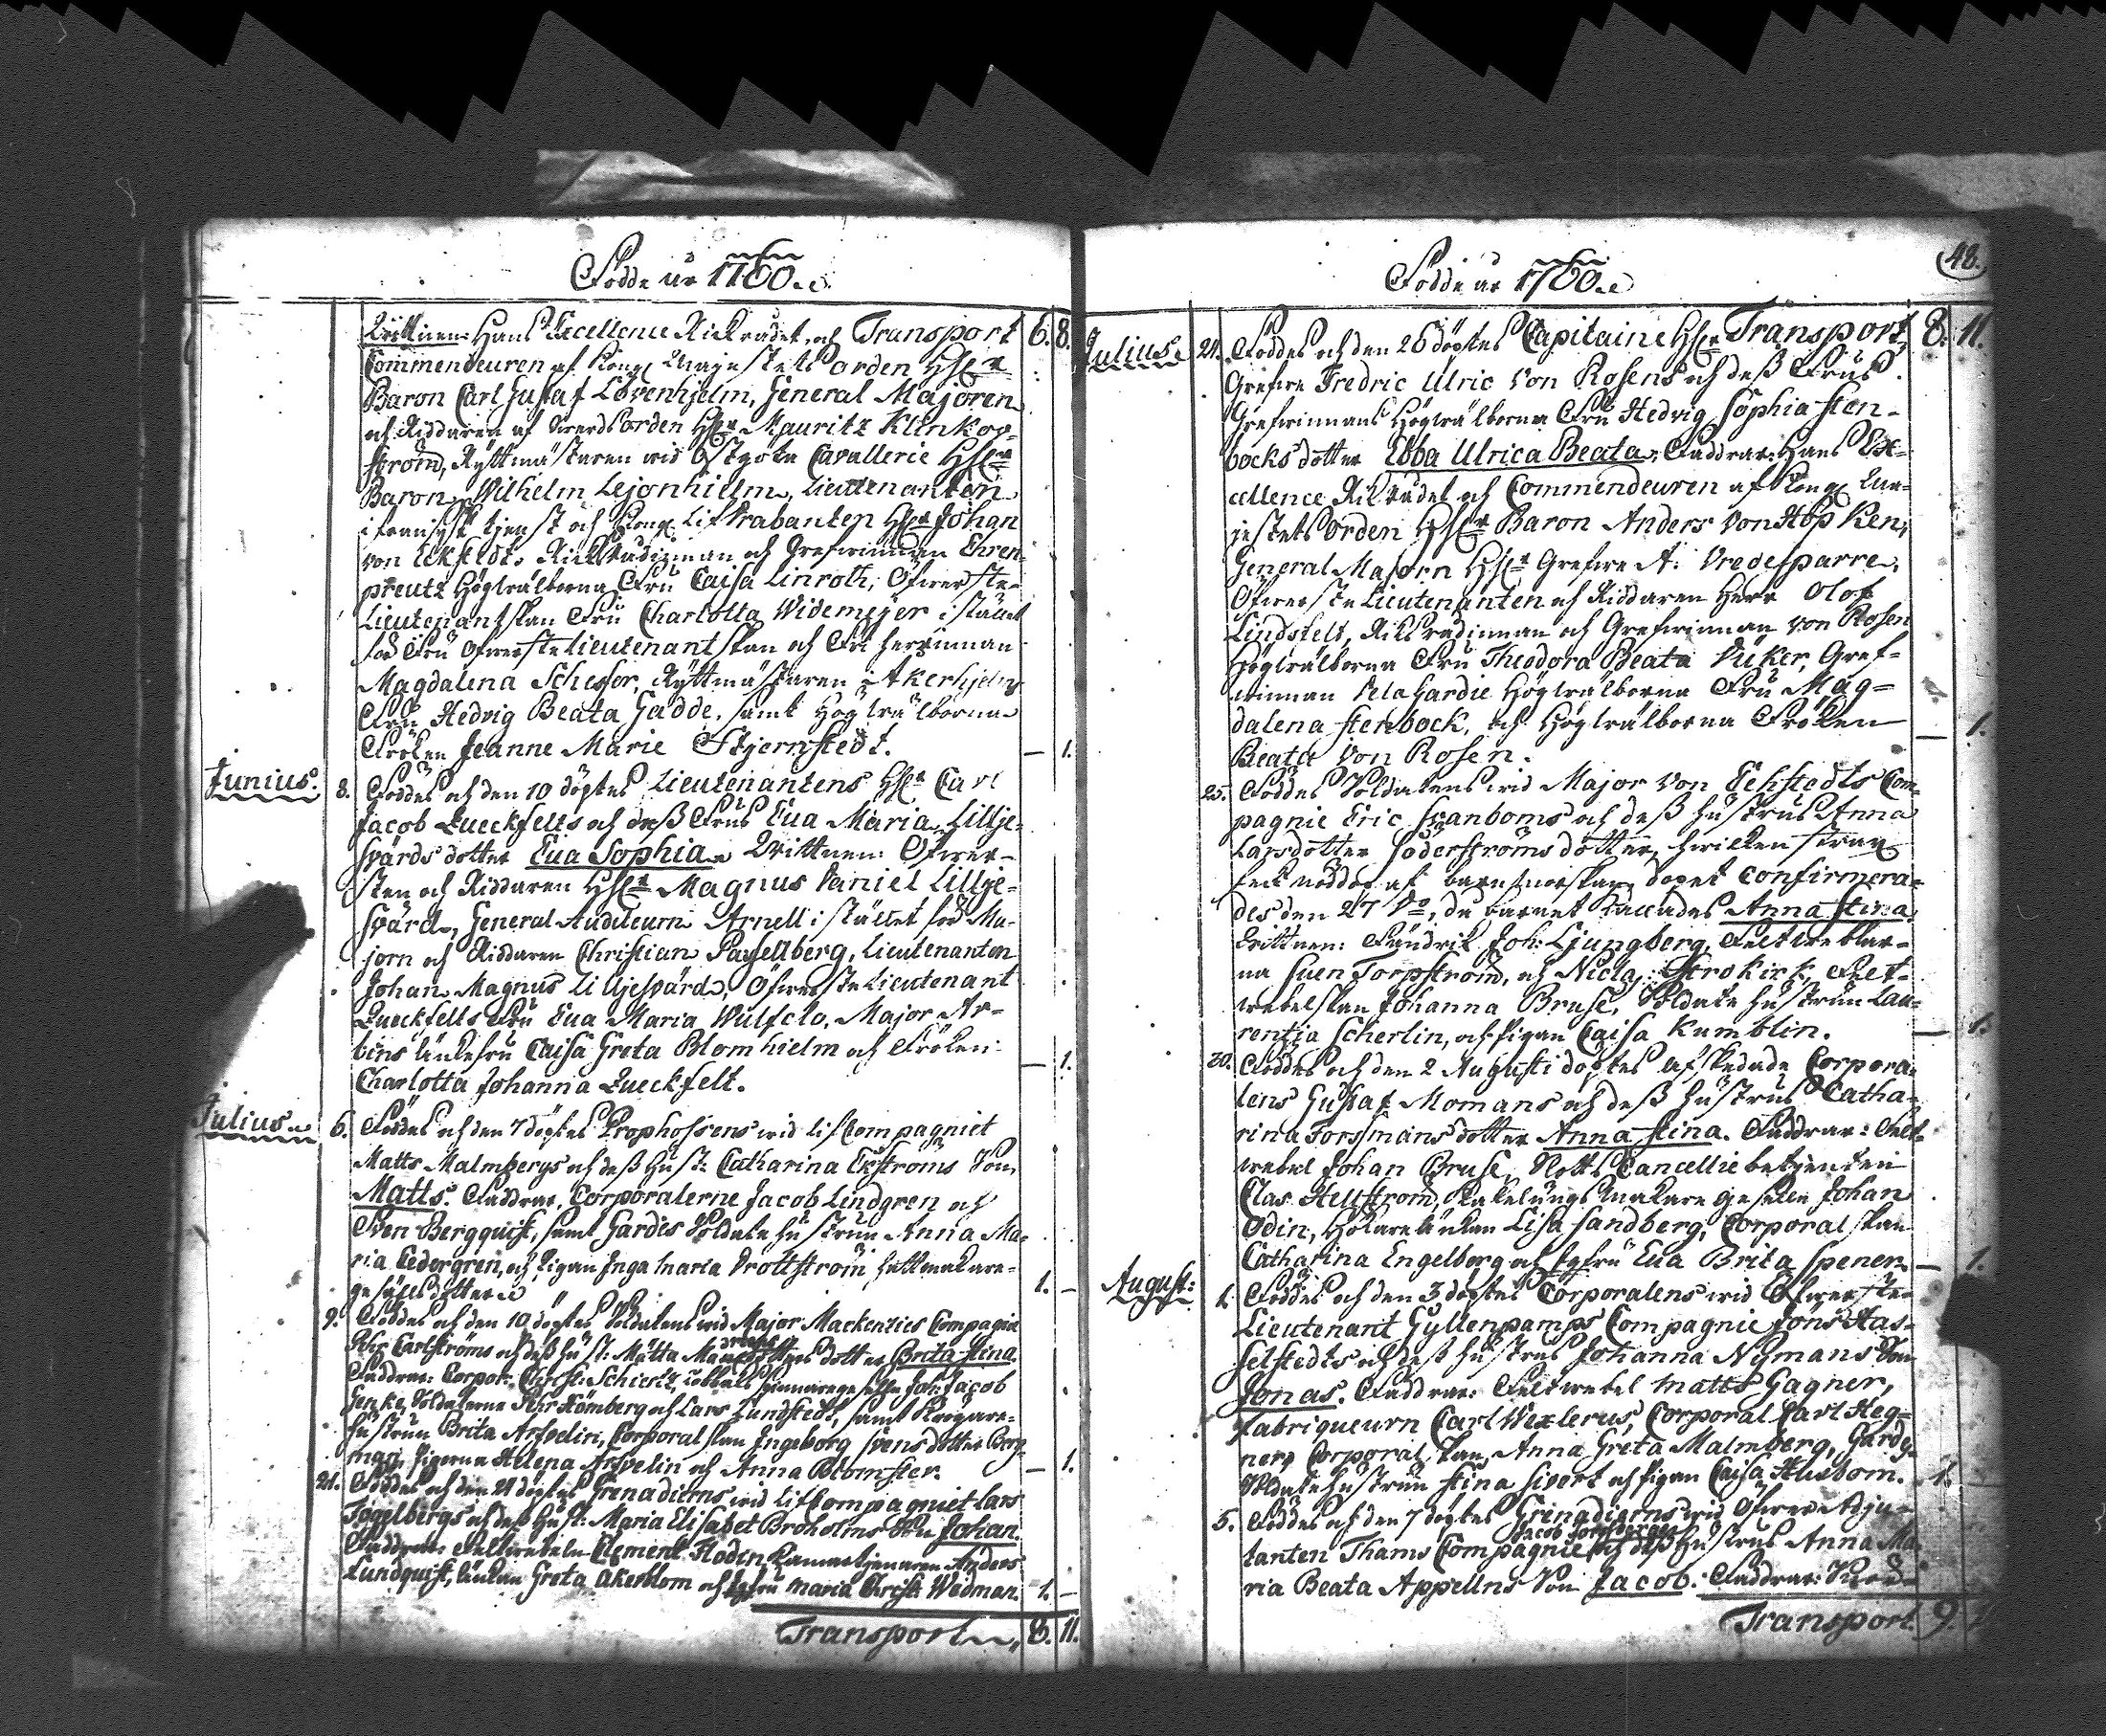 Födde år 1760.
Wittnen: Hans Excellence Riksrådet, och Transport 6. 8.
Commendeuren af Kongl Majestets orden HHr
Baron Carl Gustaf Lövenhjelm, General Majoren
och Riddaren af Swerdsorden HHr Mauritz Klinkov-
ström, Ryttmästaren wid Östgöta Cavallerie HHr
Baron Wilhelm Lejonhielm, Lieutenanten
i fransysk tjenst och Kongl Lif Trabanten HHr Johan
von Eckstedt. Riksrådinnan och Grefwinnan Ehren-
preutz Högwälborna Fru Caisa Linroth, Öfwerste
Lieutenantskan Fru Charlotta Widemejer i stället
för Fru Öfwerste Lieutenantskan och Friherrinnan
Magdalena Scheffer, Ryttmästaren Akerhjelms
Fru Hedvig Beata Gadde, samt Högwälborna
Fröken Jeanne Marie Stjernstedt. — 1.
Junius. 8. Föddes och den 10 döptes Lieutenantens HHr Carl
Jacob Queckfelts och dess Frus Eva Maria Lillje-
svärds dotter Eva Sophia. Wittnen: Öfwer-
sten och Riddaren HHr Magnus Daniel Lillje-
svärd, General Auditeurn Arnell i stället för Ma-
jorn och Riddaren Christian Pasellberg, Lieutenanten
Johan Magnus Lilljesvärd, Öfwerste Lieutenant
Queckfelts Fru Eva Maria Wulfclo, Major Ar-
bins änkefru Caisa Greta Blomhielm och Fröken
Charlotta Johanna Queckfelt. — 1.
Julius 6. Föddes och den 7 döptes Prophossens wid lif Compagniet
Matts Malmbergs och dess hust: Catharina Ekströms Son
Matts. Faddrar, Corporalerne Jacob Lindgren och
Sven Bergquist, samt Gardes Soldatehustrun Anna Ma-
ria Cedergren, och Pigan Inga Maria Dröttström hattmakare-
gesällsdotter. 1. —
9. Föddes och den 10 döptes Soldatens wid Major Mackenzies Compagnie
Pehr Carlströms och dess hust: Mätta Månsdotters dotter Brita Stina.
Faddrar: Corpor: Christ: Schiertz, tobaks spinnaregesälle Joh: Jacob
Jenke, Soldaterne Pehr Hömberg och Lars Lundstedt, samt Krögare-
hustrun Brita Arfvelin, Corporalskan Ingeborg Svensdotter Berg-
man, Pigorna Helena Arfvelin och Anna Blomster. — 1.
21. Föddes och den 21 döptes Grenadierns wid lifCompagniet Lars
Fogelbergs och dess hust: Maria Elisabet Broholms Son Johan.
Faddrar: Feltwebeln Clement Flodin, Kamartjenaren Anders
Lundquist, änkan Greta Åkerblom och Jgfru Maria Christ: Wedman. 1. —
Transport 8. 11.
48.
Födde år 1760.
Julius 21. Föddes och den 26 döptes Capitaine HHr Transport, 8. 11.
Grefwe Fredric Ulric Von Rosens och dess Frus
Grefwinnans Högwälborna Fru Hedvig Sophia Sten-
bocks dotter Ebba Ulrica Beata. Faddrar: Hans Ex-
cellence Riksrådet och Commendeuren af Kongl Ma-
jestets orden HHr Baron Anders Von Höpken,
General Majorn HHr Grefwe A: Vredesparre,
Öfwerste Lieutenanten och Riddaren Herr Olof
Lindsfelt, Riksrådinnan och Grefwinnan Von Rosen
Högwälborna Fru Theodora Beata Düker, Gref-
winnan Dela Gardie Högwälborna Fru Mag-
dalena Stenbock, och Högwälborna Fröken — 1.
Beata Von Rosen.
25. Föddes Soldatens wid Major von Eckstedts Com-
pagnie Eric Svanboms och dess hustrus Anna
Larsdotter Söderströms dotter, hwilken strax
fick nöddop af barnmorskan, dopet confirmera-
des den 27 Do, då barnet kallades Anna Stina.
Wittnen: Fändrik Joh: Ljungberg, Feltweblar-
na Suen Torpström, och Nicla: Strokirk, Felt-
webelskan Johanna Bruse, Soldate hustrun Lau-
rentia Scherlin, och Pigan Caisa Kumblin. — 1.
30. Föddes och den 2 Augusti döptes afskedade Corpora-
lens Gustaf Momans och dess hustrus Catha-
rina Forssmans dotter Anna Stina. Faddrar: Felt-
webel Johan Bruse, Slotts Cancellie betjenten
Clas Hellström, Kakelungsmakare gesälln Johan
Odin, Hökare änkan Lisa Sandberg, Corporalskan
Catharina Engelberg och Jgfru Eva Brita Spener. — 1.
August: 1. Föddes och den 3 döptes Corporalens wid Öfwerste
Lieutenant Gyllenpamps Compagnie Jöns Has-
selstedts och dess hustrus Johanna Nymans Son
Jonas. Faddrar: Feltwebel Matts Gagner,
Fabriqueurn Carl Wexlerus, Corporal Carl Heg-
ners Corporalskan Anna Greta Malmberg, Gardes
Soldatehustrun Stina Sivert och Pigan Caisa Husbom. 1.
5. Föddes och den 7 döptes Grenadierns wid Öfwer Adju-
tanten Thams Compagnie Jacob Forsbergs och dess hustrus Anna Ma-
ria Beata Appellns Son Jacob. Faddrar:
Transport. 9.